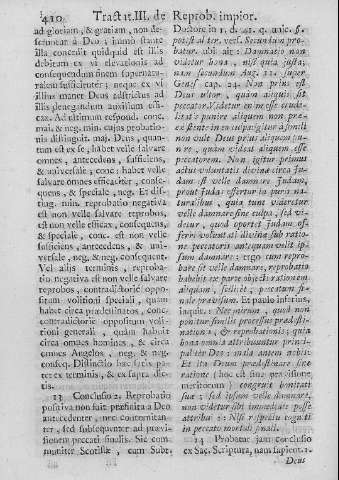 420 Tract.II. de Reprob. impior.
ad gloriam, & gratiam, non de-
scenduntur à Deo; immò stante
illa concenit quidquid est illis
debitum ex vi elevationis ad
consequendum finem superna-
turalem sufficienter; neque ex vi
illius manet Deus adstrictus ad
illis denegandum auxilium effi-
cax. Ad ultimum respond. conc.
mai. & neg. min. cujus probatio-
nis distinguit. maj. Deus, quan-
tum est ex se, habet velle salvare
omnes, antecedens, sufficiens,
& universale; conc; habet velle
salvare omnes efficaciter, conse-
quens, & speciale, neg. Et dis-
ting. min. reprobatio negativa
est non velle salvare reprobus,
est non velle efficax, consequens,
& speciale, conc. est non velle
sufficiens, antecedens, & uni-
versale, neg. & neg. consequent.
Vel aliis terminis, reproba-
tio negativa est non velle salvare
reprobos, contradictoriè oppo-
situm volitioni speciali, quam
habet circa prædestinatos, conc.
contradictoriè oppositum voli-
tioni generali, quam habuit
circa omnes homines, & circa
omnes Angelos, neg. & neg.
conseq. Distinctio hæc satis pa-
tet ex terminis, & ex supra dic-
tis.
13 Conclusio 2. Reprobatio
positiva non fuit præfinita à Deo
antecedenter, nec concomitan-
ter, sed subsequenter ad prævi-
sionem peccati finalis. Sic com-
muniter Scotistæ, cum Subt.
Doctore in 1. d. 41. q. unic. §.
potest aliter. vers. Secundum pro-
babat. ubi ait: Damnatio non
videtur bona, nisi quia justa;
nam secundum Aug. 11. super
Genes. cap. 24. Non prius est
Deus ultor, quàm aliquis sit
peccator. Videtur enim esse crude-
litatis punire aliquem non præ-
existente in eo culpa; igitur à simili
non vult Deus prius aliquem pu-
nire, quàm videat aliquem esse
peccatorem. Non igitur primus
actus voluntatis divinæ circa Ju-
dam est velle damnare Judam,
prout Judas offertur in puris na-
turalibus, quia tunc videretur
velle damnare sine culpa, sed vi-
detur, quod oportet Judam of-
ferri voluntati divinæ sub ratio-
ne peccatoris antequam velit ip-
sum damnare; ergo cum repro-
bare sit velle damnare, reprobatio
habebit ex parte objecti rationem
aliquam, scilicet, peccatum fi-
nale prævisum. Et paulo inferius,
inquit: Nec mirum, quod non
ponitur similis processus prædesti-
nationis, & reprobationis; quia
bona omnia attribuuntur princi-
paliter Deo; mala autem nobis:
Et ita Deum prædestinare sine
ratione (hoc est sine prævisione
meritorum) congruit bonitati
suæ; sed ipsum velle damnare,
non videtur sibi immediatè posse
attribui: Nisi respectu cogniti
in peccato mortali finali.
14 Probatur jam conclusio
ex Sac. Scriptura, nam sapient. 1.
Deus